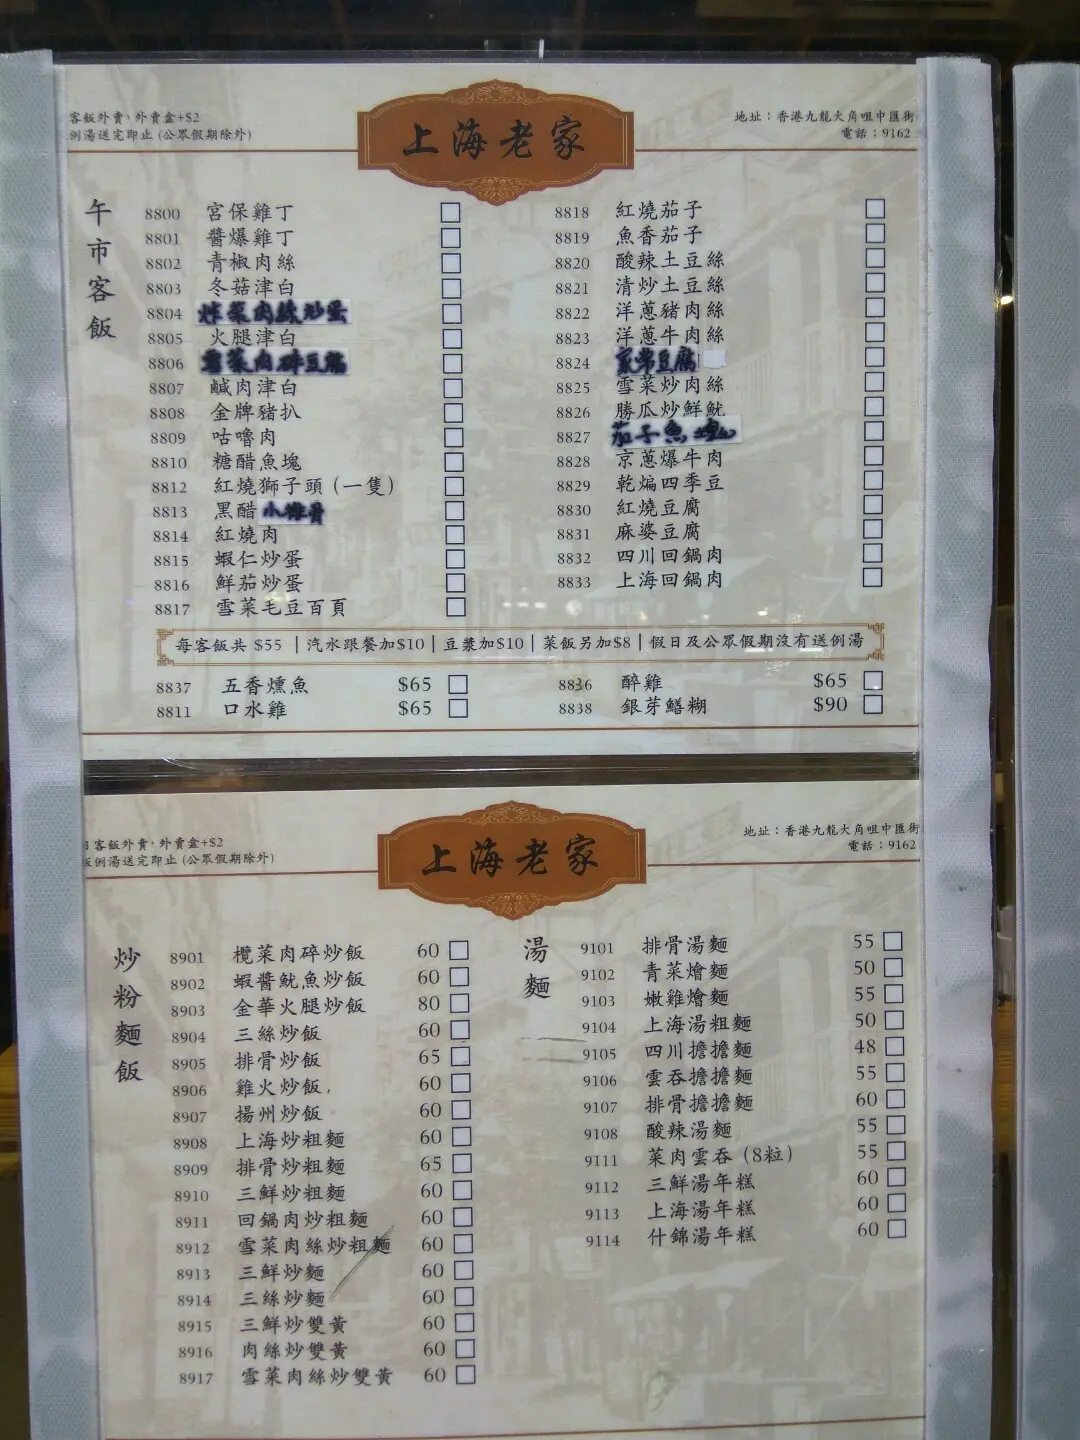 客飯外賣，外賣盒+$2
例湯送完即止(公眾假期除外)
上海老家
地址：香港九龍大角咀中匯街
電話：9162
午市客飯
8800 宮保雞丁
8801 醬爆雞丁
8802 青椒肉絲
8803 冬菇津白
8804 炸菜肉絲炒蛋
8805 火腿津白
8806 雪菜肉碎豆腐
8807 鹹肉津白
8808 金牌豬扒
8809 咕嚕肉
8810 糖醋魚塊
8812 紅燒獅子頭(一隻)
8813 黑醋小排骨
8814 紅燒肉
8815 蝦仁炒蛋
8816 鮮茄炒蛋
8817 雪菜毛豆百頁
8818 紅燒茄子
8819 魚香茄子
8820 酸辣土豆絲
8821 清炒土豆絲
8822 洋蔥豬肉絲
8823 洋蔥牛肉絲
8824 家常豆腐
8825 雪菜炒肉絲
8826 勝瓜炒鮮魷
8827 茄子魚塊
8828 京蔥爆牛肉
8829 乾煸四季豆
8830 紅燒豆腐
8831 麻婆豆腐
8832 四川回鍋肉
8833 上海回鍋肉
每客飯共 $55 | 汽水跟餐加$10 | 豆漿加$10 | 菜飯另加$8 | 假日及公眾假期沒有送例湯
8837 五香燻魚 $65
8811 口水雞 $65
8836 醉雞 $65
8838 銀芽鱔糊 $90
客飯外賣，外賣盒+$2
例湯送完即止(公眾假期除外)
上海老家
地址：香港九龍大角咀中匯街
電話：9162
炒粉麵飯
8901 欖菜肉碎炒飯 60
8902 蝦醬魷魚炒飯 60
8903 金華火腿炒飯 80
8904 三絲炒飯 60
8905 排骨炒飯 65
8906 雞火炒飯 60
8907 揚州炒飯 60
8908 上海炒粗麵 60
8909 排骨炒粗麵 65
8910 三鮮炒粗麵 60
8911 回鍋肉炒粗麵 60
8912 雪菜肉絲炒粗麵 60
8913 三鮮炒麵 60
8914 三絲炒麵 60
8915 三鮮炒雙黃 60
8916 肉絲炒雙黃 60
8917 雪菜肉絲炒雙黃 60
湯麵
9101 排骨湯麵 55
9102 青菜燴麵 50
9103 嫩雞燴麵 55
9104 上海湯粗麵 50
9105 四川擔擔麵 48
9106 雲吞擔擔麵 55
9107 排骨擔擔麵 60
9108 酸辣湯麵 55
9111 菜肉雲吞(8粒) 55
9112 三鮮湯年糕 60
9113 上海湯年糕 60
9114 什錦湯年糕 60